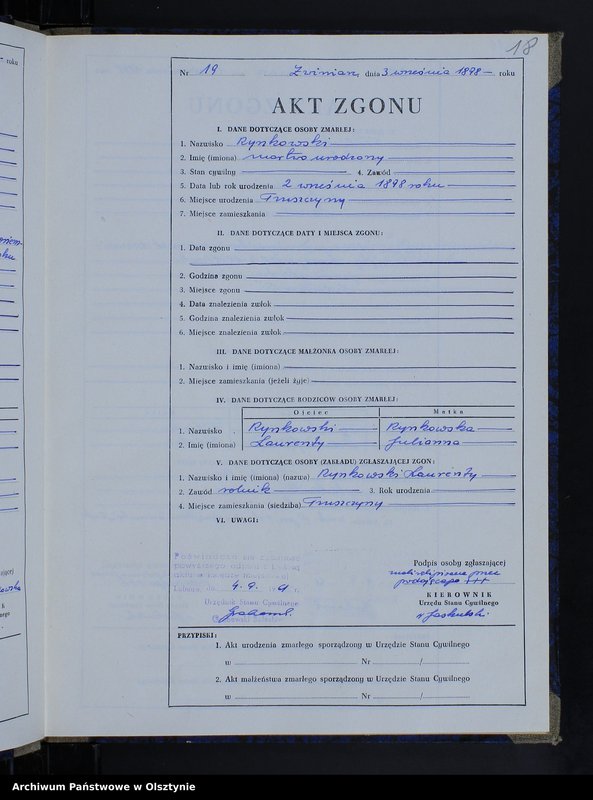 18
Nr 19 Zwiniarz, dnia 3 września 1898 roku
AKT ZGONU
I. DANE DOTYCZĄCE OSOBY ZMARŁEJ:
1. Nazwisko Rynkowski
2. Imię (imiona) martwo urodzony
3. Stan cywilny 4. Zawód
5. Data lub rok urodzenia 2 września 1898 roku
6. Miejsce urodzenia Truszczyny
7. Miejsce zamieszkania
II. DANE DOTYCZĄCE DATY I MIEJSCA ZGONU:
1. Data zgonu
2. Godzina zgonu
3. Miejsce zgonu
4. Data znalezienia zwłok
5. Godzina znalezienia zwłok
6. Miejsce znalezienia zwłok
III. DANE DOTYCZĄCE MAŁŻONKA OSOBY ZMARŁEJ:
1. Nazwisko i imię (imiona)
2. Miejsce zamieszkania (jeżeli żyje)
IV. DANE DOTYCZĄCE RODZICÓW OSOBY ZMARŁEJ:
Ojciec Matka
1. Nazwisko Rynkowski Rynkowska
2. Imię (imiona) Laurenty Julianna
V. DANE DOTYCZĄCE OSOBY (ZAKŁADU) ZGŁASZAJĄCEJ ZGON:
1. Nazwisko i imię (imiona) (nazwa) Rynkowski Laurenty
2. Zawód rolnik 3. Rok urodzenia
4. Miejsce zamieszkania (siedziba) Truszczyny
VI. UWAGI:
Poświadcza się zgodność
4. 9.
Urzędnik Stanu Cywilnego
Podpis osoby zgłaszającej
podającego +++
KIEROWNIK
Urzędu Stanu Cywilnego
PRZYPISKI:
1. Akt urodzenia zmarłego sporządzony w Urzędzie Stanu Cywilnego
w Nr /
2. Akt małżeństwa zmarłego sporządzony w Urzędzie Stanu Cywilnego
w Nr /
Archiwum Państwowe w Olsztynie